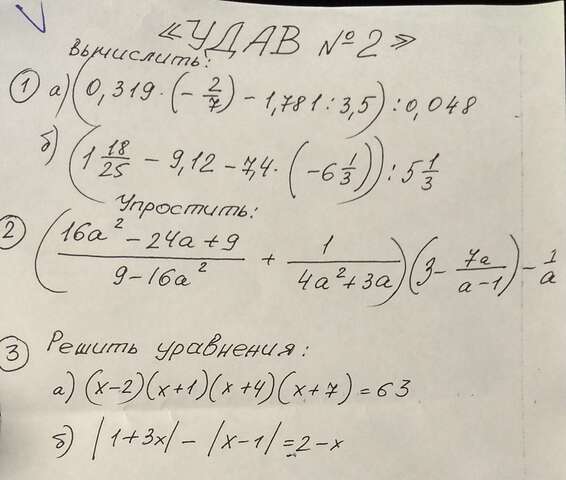 «УДАВ №2»
Вычислить:
① а) (0,319 · (− 2/7) − 1,781 : 3,5) : 0,048
б) (1 18/25 − 9,12 − 7,4 · (−6 1/3)) : 5 1/3
Упростить:
② ((16a² − 24a + 9)/(9 − 16a²) + 1/(4a² + 3a)) (3 − 7a/(a − 1)) − 1/a
③ Решить уравнения:
а) (x−2)(x+1)(x+4)(x+7) = 63
б) |1+3x| − |x−1| = 2−x